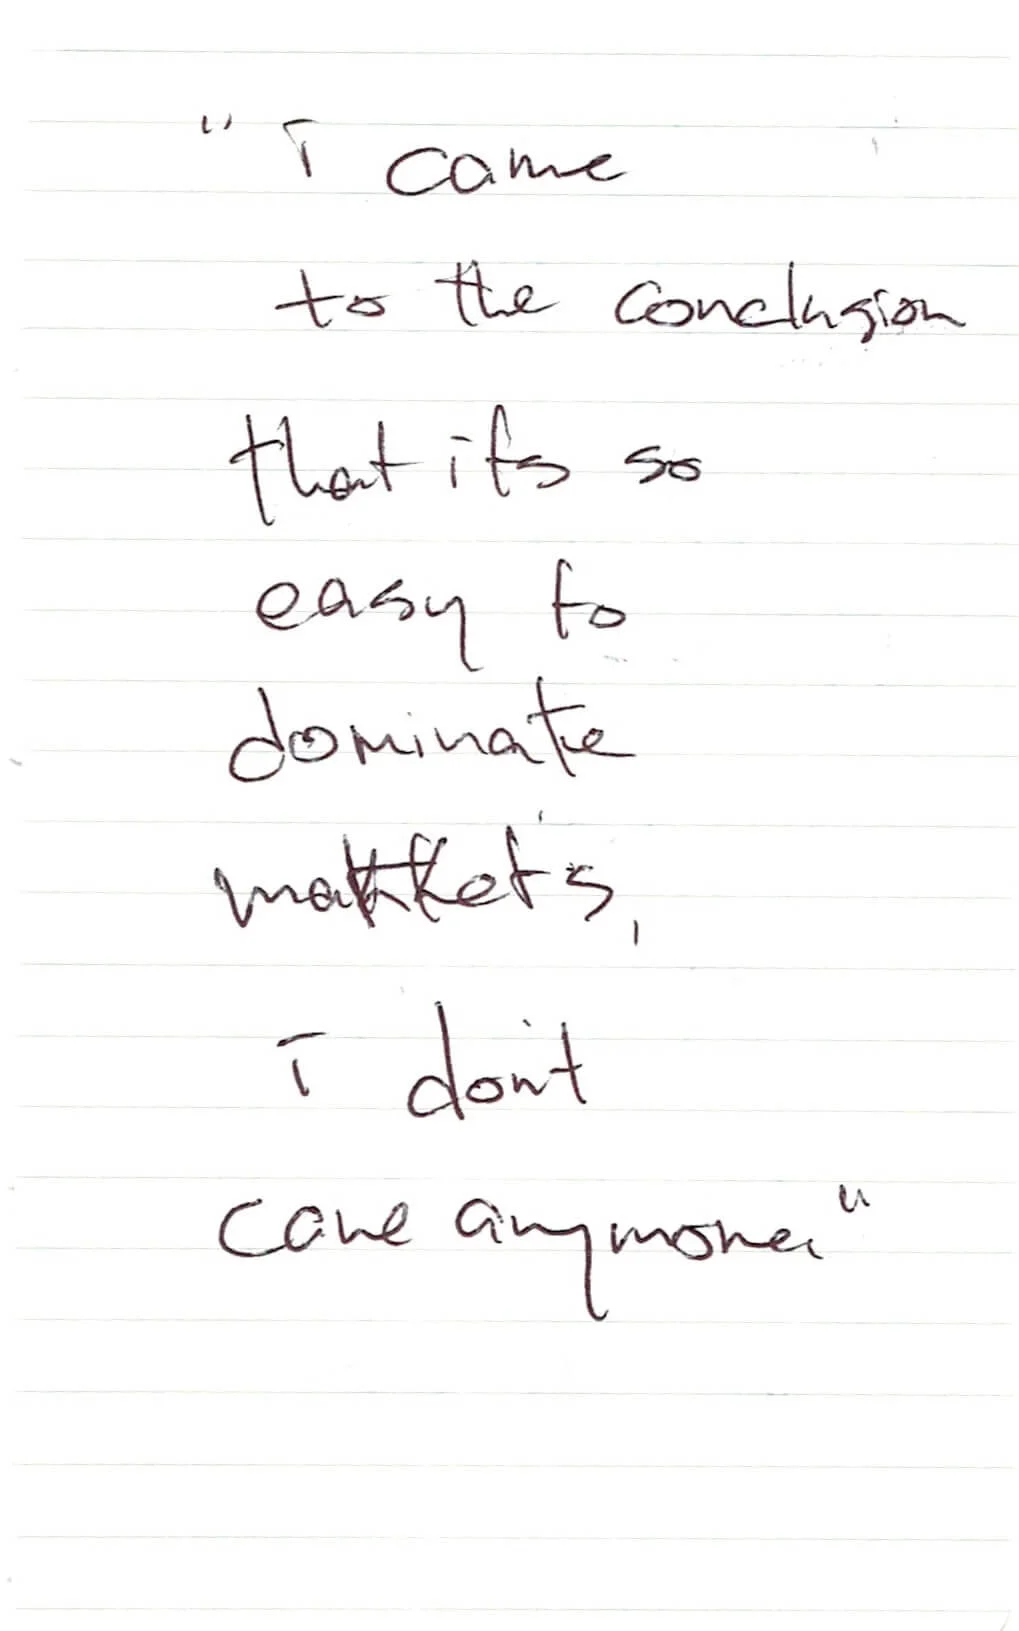 "I came
to the conclusion
that its so
easy to
dominate
market's,
I don't
care anymore"